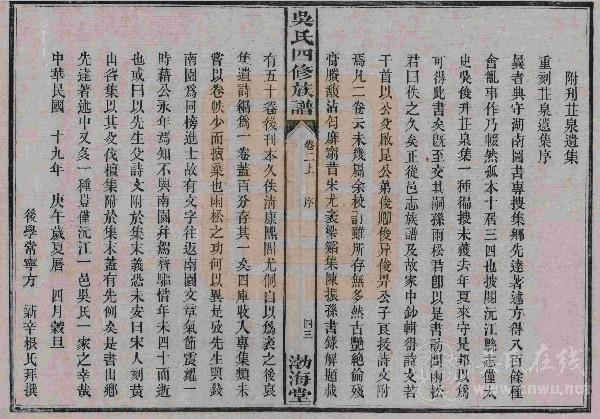 附刊茳泉遺集
重刻茳泉遺集序
曩者典守湖南圖書專搜集鄉先達著述方得八百餘種
會亂事作乃輟然孤本十居三四也披閱沅江縣志僅太
史吳後升茳泉集一種徧搜未獲去年夏來守是邦以爲
可得此書矣旣至交其嗣孫雨松君卽以是書訪問雨松
君曰佚之久矣正後邑志族譜及故家中鈔輯得詩文若
干首以公父啟是公弟俊顒俊昇公子良授詩文附
焉凡二卷云未幾屬余校訂雖所存無多然古艷絕倫殘
膏賸馥沾匄靡窮昔宋尤袤梁谿集陳振孫書錄解題載
吳氏四修族譜
卷二上 序
四三
渤海堂
有五十卷後刊本久佚清康熙間尤侗自以爲袤之後裒
集遺詩編爲一卷蓋百分存其一矣四庫收入專集類未
嘗以卷帙少而擯棄也雨松之功何以異是攷先生與錢
南園爲同榜進士故有文字往返南園文章氣節震耀一
時藉公永年焉知不與南園幷駕齊驅惜年未四十而逝
也或曰以先生父詩文附於集末義恐未安曰宋人刻黃
山谷集以其父伐檀集附於集末蓋有先例矣是書出鄉
先達著述中又多一種豈僅沅江一邑吳氏一家之幸哉
中華民國 十九年 庚午歲夏曆 四月穀旦
後學常寧方 新辛根氏拜撰
www.cnwu.net